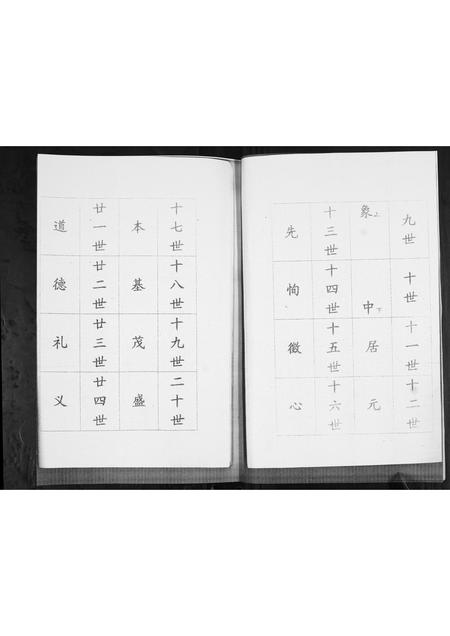 九世
十世
十一世
十二世
象上
中下
居
元
十三世
十四世
十五世
十六世
先
恂
徽
心
十七世
十八世
十九世
二十世
本
基
茂
盛
廿一世
廿二世
廿三世
廿四世
道
德
礼
义